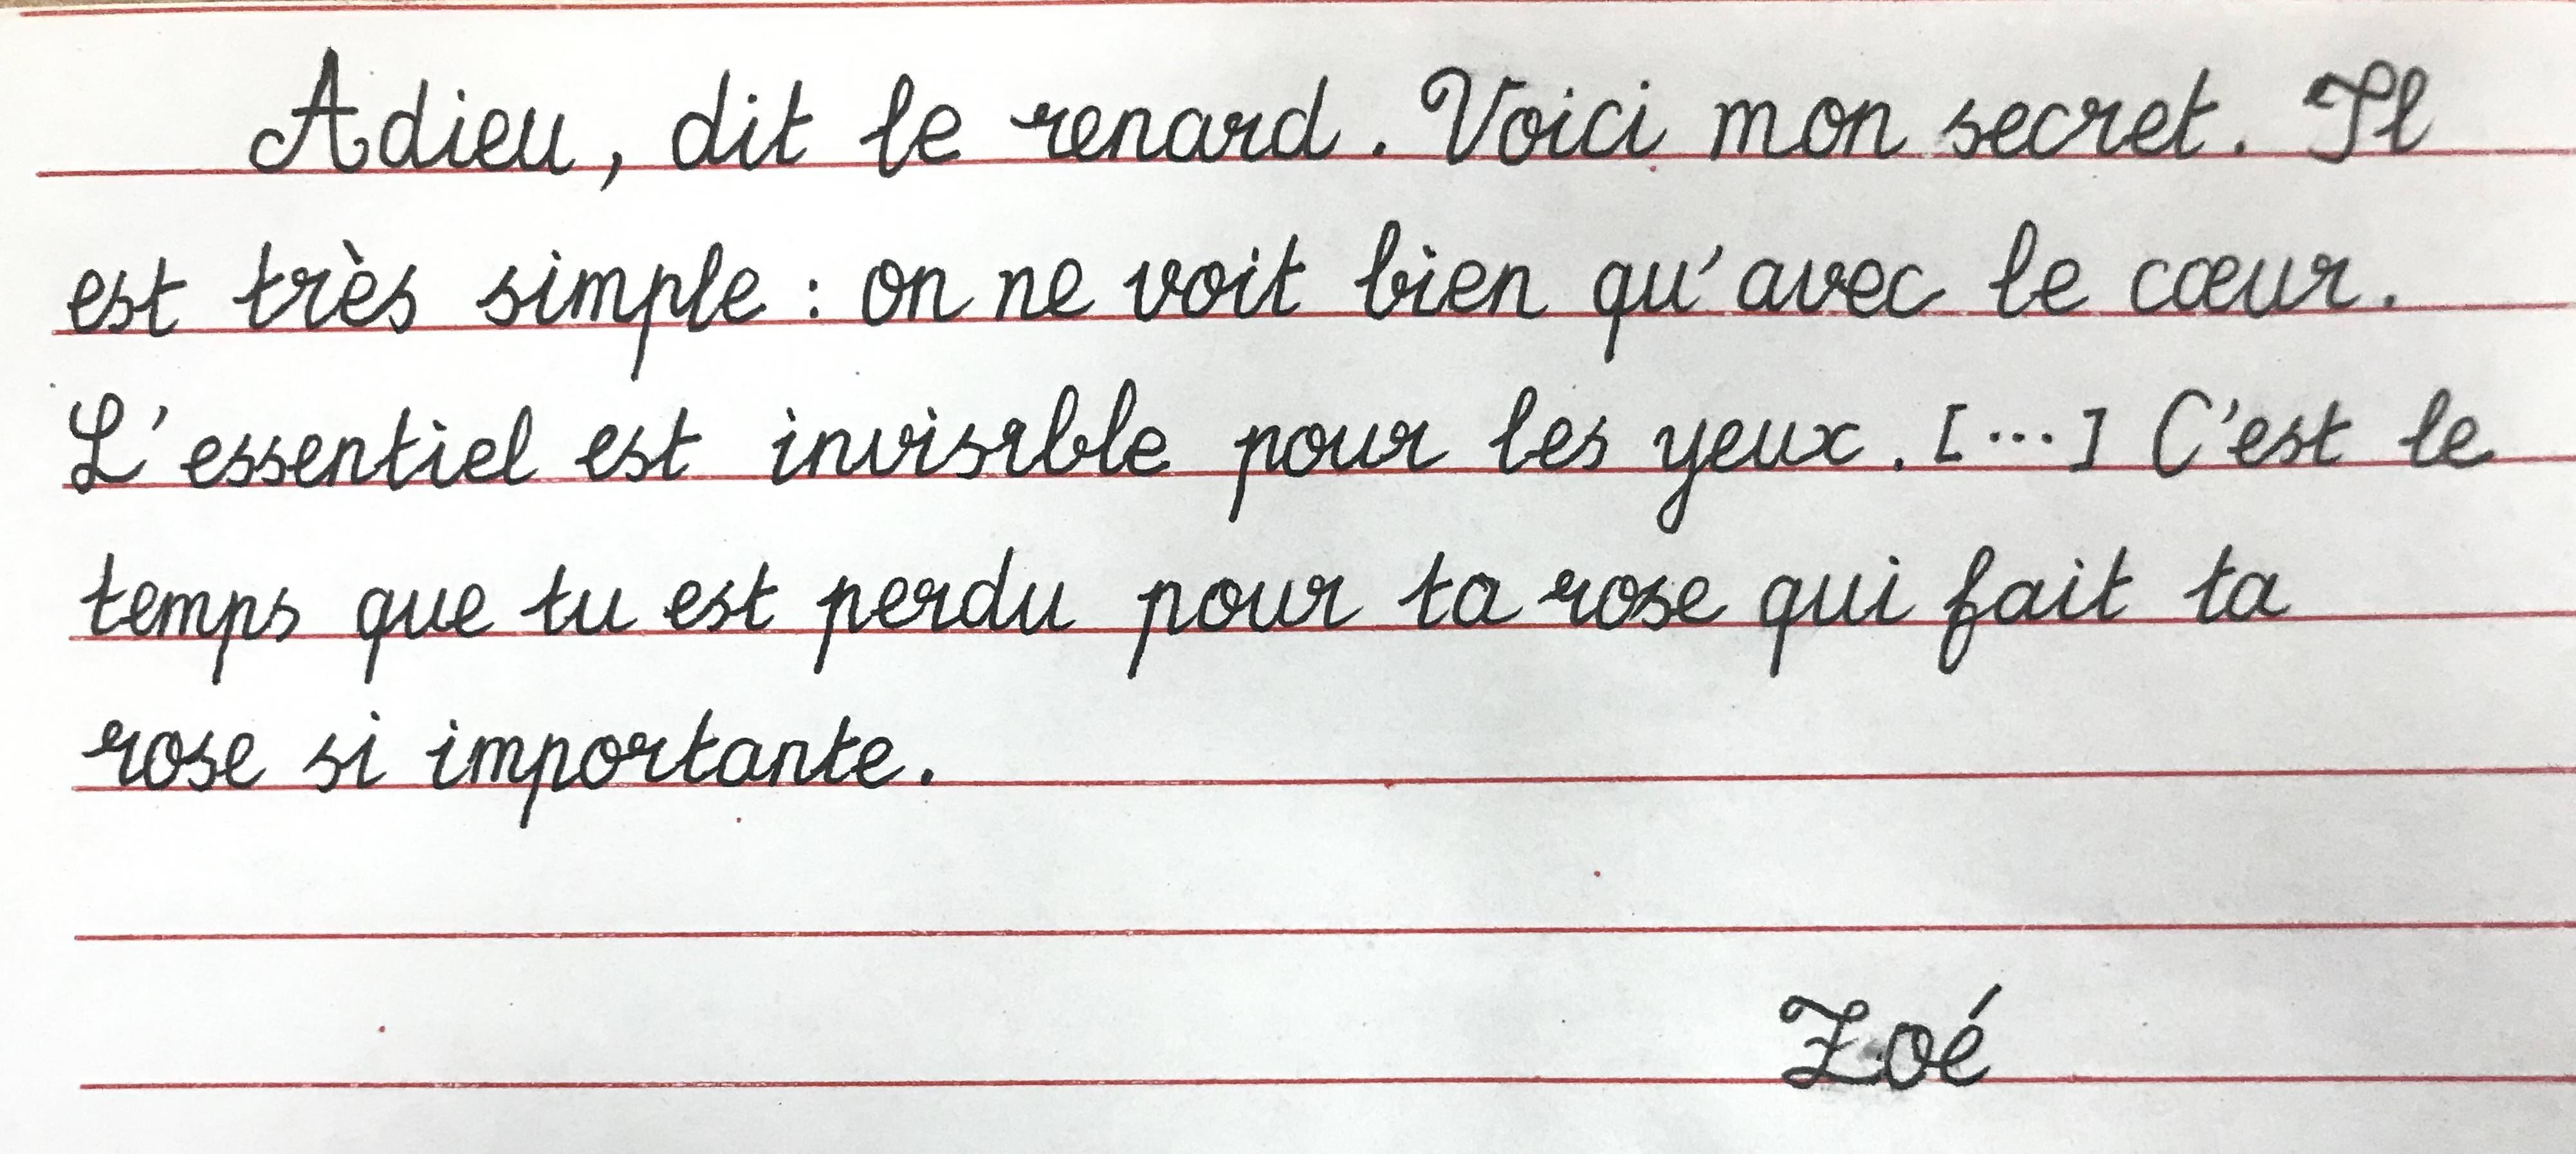 Adieu, dit le renard. Voici mon secret. Il
est très simple : on ne voit bien qu'avec le cœur.
L'essentiel est invisible pour les yeux. [...] C'est le
temps que tu est perdu pour ta rose qui fait ta
rose si importante.
Zoé